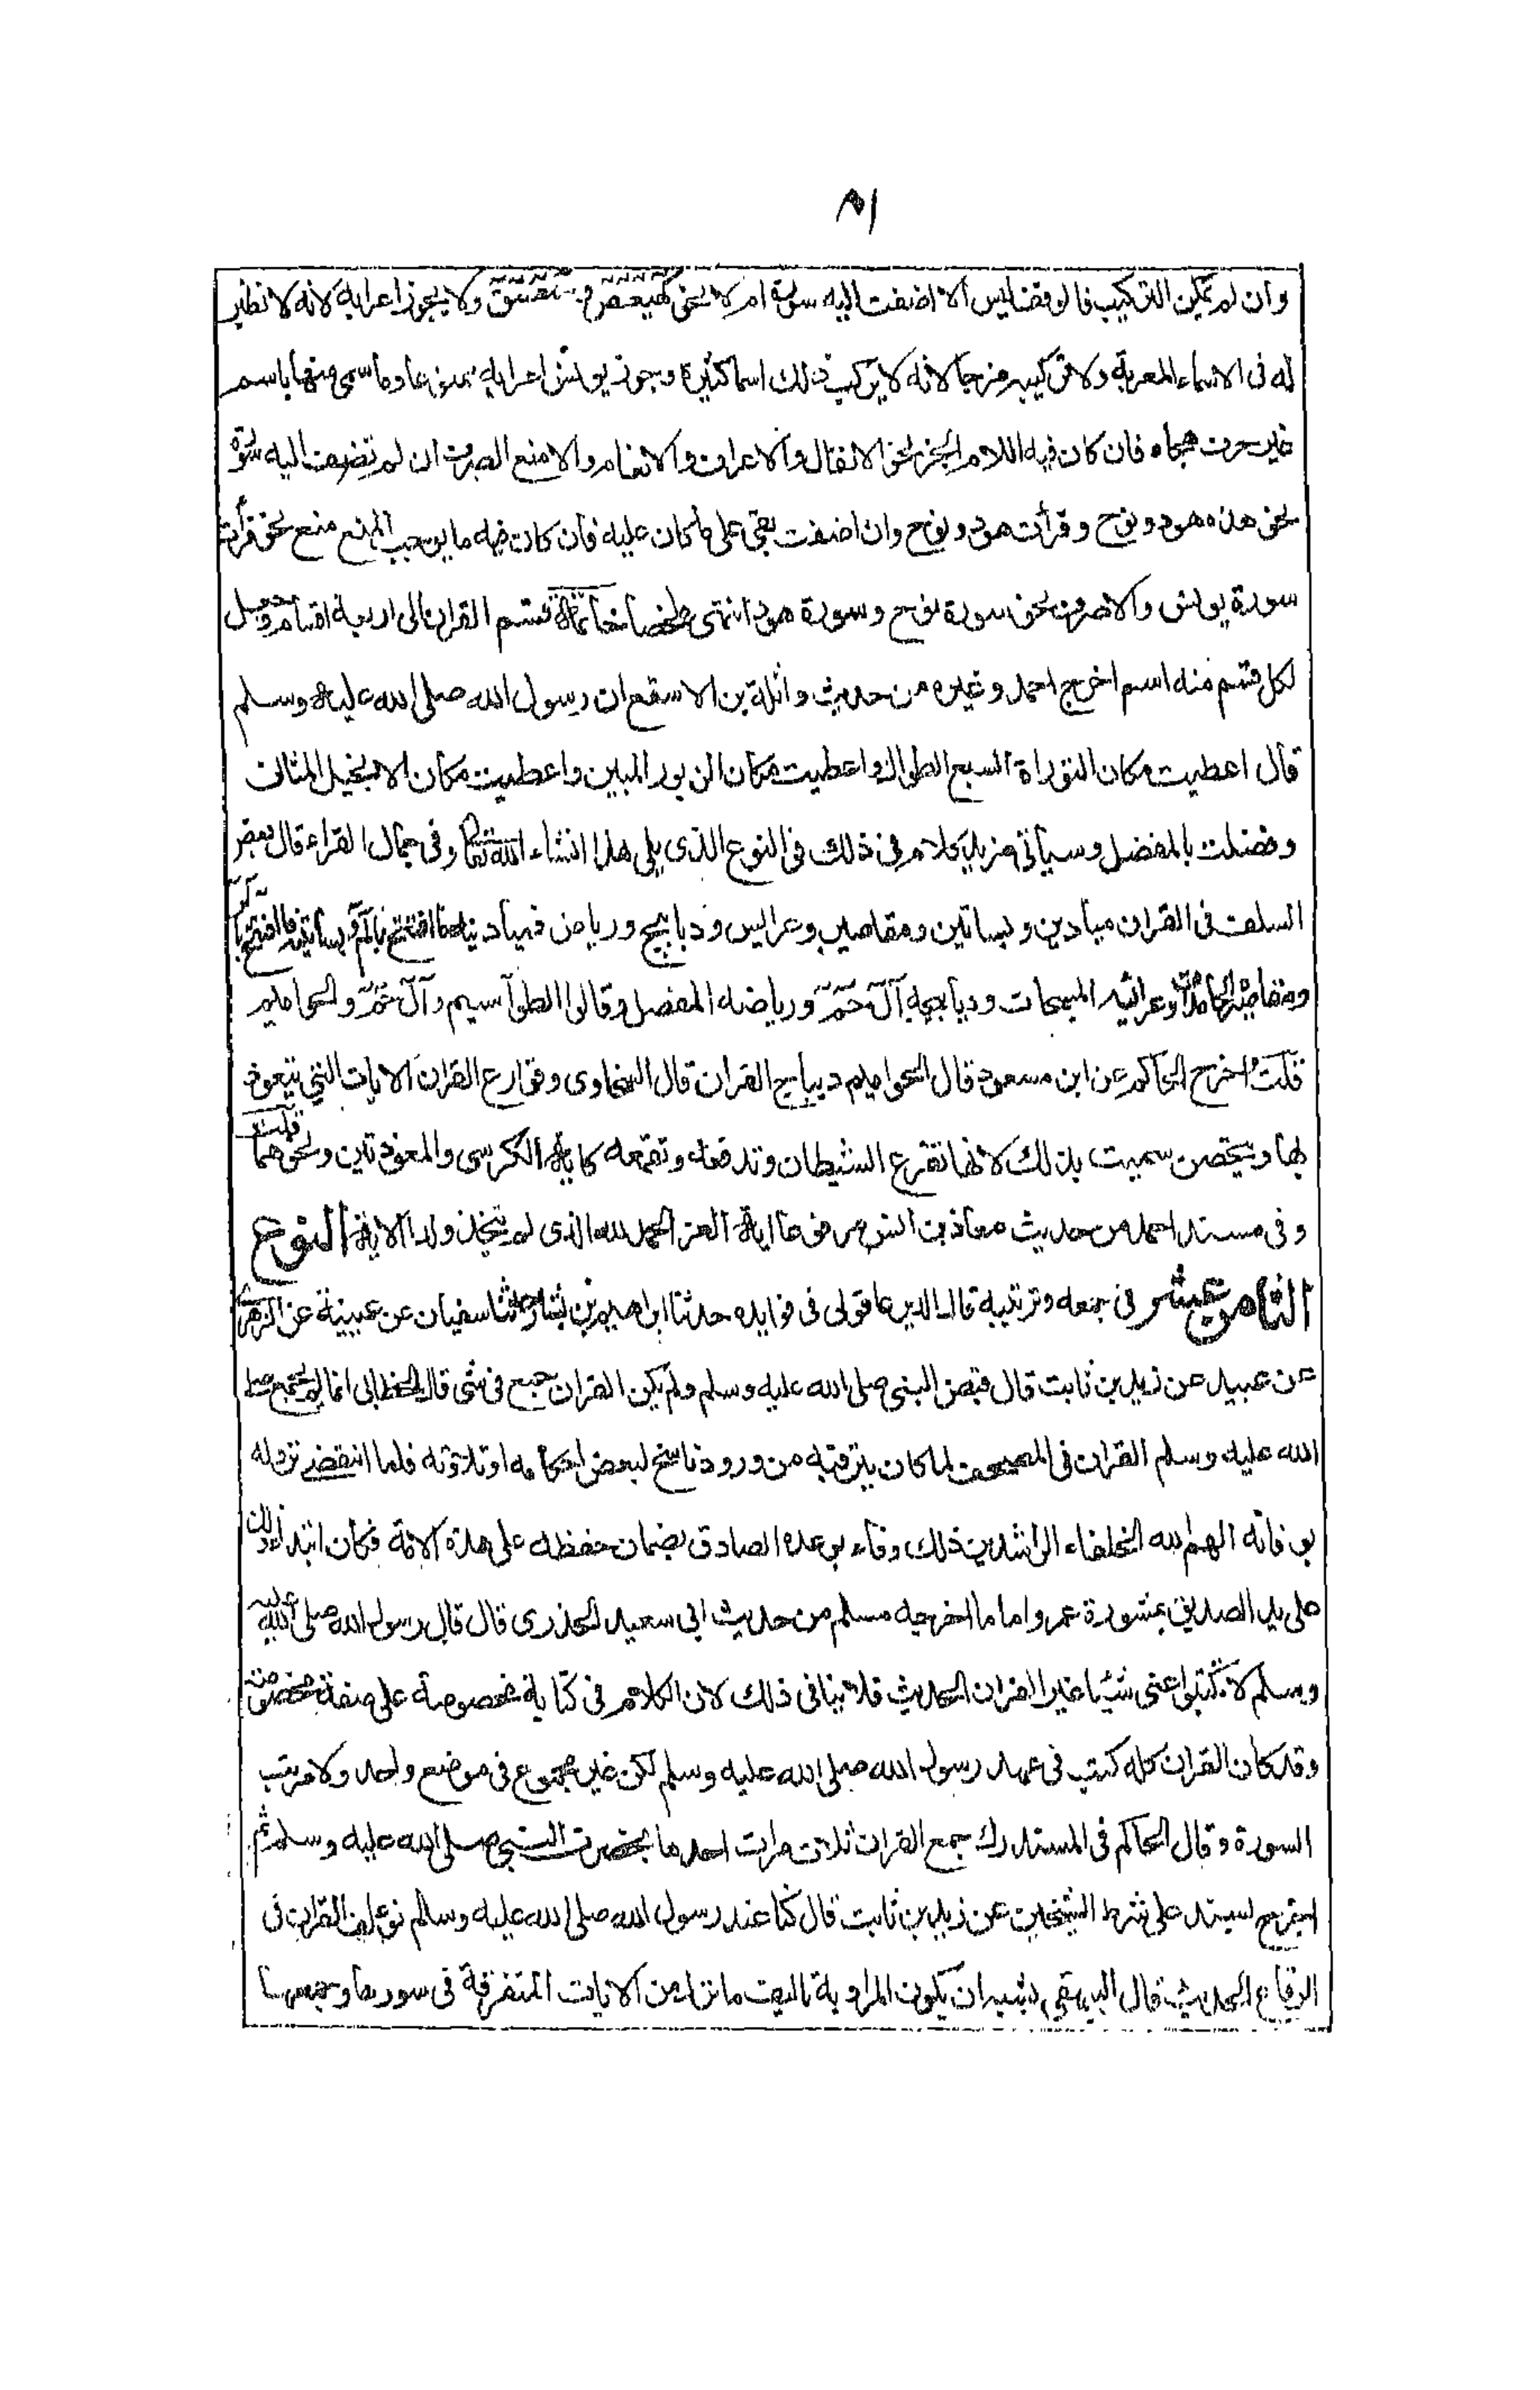 ٨١
وان لم يمكن التركيب فالوقف ليس الا اضفت اليه سورة ام لا نحو كهيعص و حمعسق ولا يجوز اعرابه لانه لا نظير
له فى الاسماء المعربة ولا تركيبه مزجا لانه لا يركب ذلك اسما كثيرة وجوز يونس اعرابه ممنوعا وما سمى منها باسم
غير حرف هجاء فان كان فيه اللام انجر نحو الانفال والاعراف والانعام والا منع الصرف ان لم تضف اليه سورة
نحو هذه هود ونوح وقرأت هود ونوح وان اضفت بقى على ما كان عليه فان كان فيه ما يوجب المنع منع نحو قرأت
سورة يونس والا صرف نحو سورة نوح وسورة هود انتهى ملخصا خاتمة قسم القران الى اربعة اقسام وجعل
لكل قسم منه اسم اخرج احمد وغيره من حديث واثلة بن الاسقع ان رسول الله صلى الله عليه وسلم
قال اعطيت مكان التوراة السبع الطوال واعطيت مكان الزبور المبين واعطيت مكان الانجيل المثانى
وفضلت بالمفضل وسيأتى مزيد كلام فى ذلك فى النوع الذى يلى هذا انشاء الله تعالى وفى جمال القراء قال بعض
السلف فى القران ميادين وبساتين ومقاصير وعرايس وديابيج ورياض فميادينه ما افتتح بالم وبساتينه ما افتتح بالر
ومقاصيره الحامدات وعرائسه المسبحات وديابيجه آل حم ورياضه المفصل وقالوا الطواسيم وآل حم والحواميم
قلت اخرج الحاكم عن ابن مسعود قال الحواميم ديباج القران قال السخاوى وقوارع القران الايات التى يتعوذ
بها ويتحصن سميت بذلك لانها تقرع الشيطان وتدفعه وتقمعه كاية الكرسى والمعوذتين ونحوهما قلت
وفى مسند احمد من حديث معاذ بن انس مرفوعا اية العز الحمد لله الذى لم يتخذ ولدا الاية النوع
الثامن عشر فى جمعه وترتيبه قال الديرعاقولى فى فوايده حدثنا ابراهيم بن بشار حدثنا سفيان عن عيينة عن الزهرى
عن عبيد عن زيد بن ثابت قال قبض النبى صلى الله عليه وسلم ولم يكن القران جمع فى شى قال الخطابى انما لم يجمع صلى
الله عليه وسلم القران فى المصحف لما كان يترقبه من ورود ناسخ لبعض احكامه او تلاوته فلما انقضى نزوله
بوفاته الهم الله الخلفاء الراشدين ذلك وفاء بوعده الصادق بضمان حفظه على هذه الامة فكان ابتداء ذلك
على يد الصديق بمشورة عمر واما ما اخرجه مسلم من حديث ابى سعيد الخدرى قال قال رسول الله صلى الله عليه
وسلم لا تكتبوا عنى شيئا غير القران الحديث فلا ينافى ذلك لان الكلام فى كتابة مخصوصة على صفة مخصوصة
وقد كان القران كله كتب فى عهد رسول الله صلى الله عليه وسلم لكن غير مجموع فى موضع واحد ولا مرتب
السورة وقال الحاكم فى المستدرك جمع القران ثلاث مرات احدها بحضرت النبى صلى الله عليه وسلم ثم
اخرج بسند على شرط الشيخين عن زيد بن ثابت قال كنا عند رسول الله صلى الله عليه وسلم نولف القران فى
الرقاع الحديث قال البيهقى يشبه ان يكون المراد به تاليف ما نزل من الايات المتفرقة فى سورها وجمعها